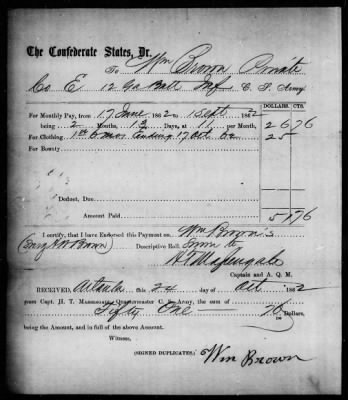 The Confederate States, Dr.
To Wm Brown Private
Co E 12 Ga Batt Inf C. S. Army.
DOLLARS. CTS.
For Monthly Pay, from 17 June 1862 to 1 Sept 1862
being 2 Months, 13 Days, at 11 per Month, 26 76
For Clothing 1st 6 mos ending 17 Oct 62 25
For Bounty
Deduct, Due
Amount Paid 51 76
I certify, that I have Endorsed this Payment on Wm Brown's
Descriptive Roll.
Captain and A. Q. M.
RECEIVED, this 24 day of Oct 1862
from Capt. H. T. Quartermaster C. S. Army, the sum of
Fifty One — 76/100 Dollars,
being the Amount, and in full of the above Amount.
Witness,
(SIGNED DUPLICATES.) Wm Brown